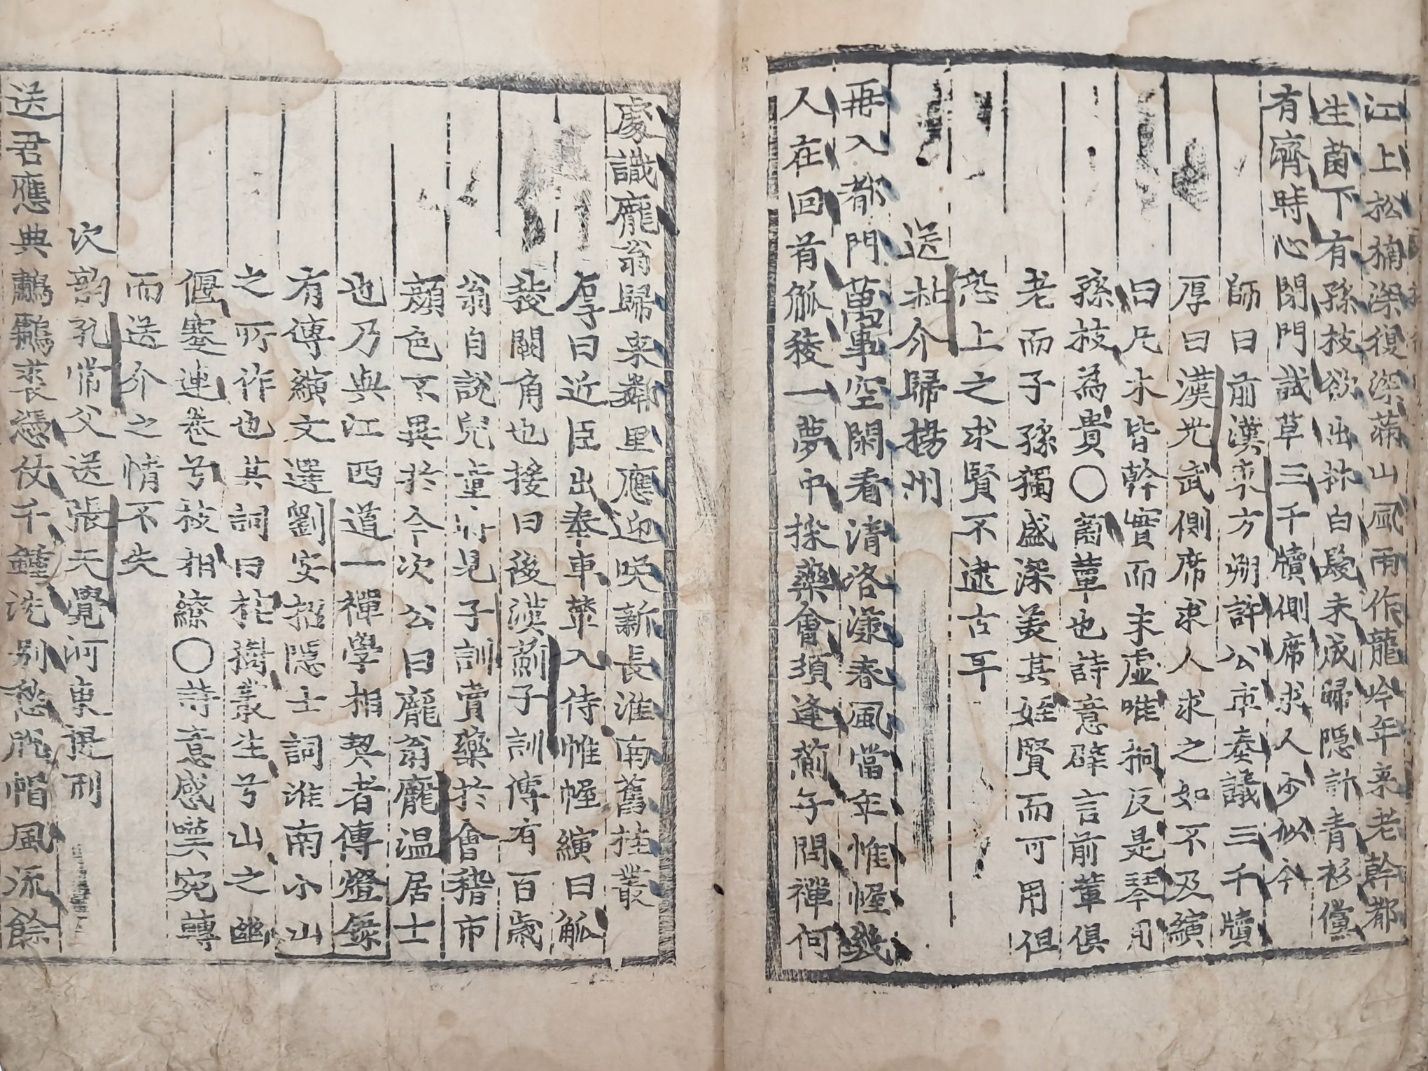 江上松楠深復深蒲山風雨作龍吟年來老幹都
生菌下有孫枝欲出林白髮未成歸隱計青衫儻
有濟時心閉門試草三千牘側席求人少似今
師曰前漢東方朔詐公車奏議三千牘
厚曰漢光武側席求人求之如不及縯
曰凡木皆幹實而末虛唯桐反是琴用
孫枝爲貴○菌蕈也詩意辟言前輩俱
老而子孫獨盛深美其姪賢而可用但
恐上之求賢不逮古耳
送朴介歸揚州
再入都門萬事空閑看淸洛漾春風當年惟幄幾
人在回首觚稜一夢中採藥會須逢薊子問禪何
處識龐翁歸來鄰里應迎笑新長淮南舊桂叢
厚曰近臣出奉車輦入侍帷幄縯曰觚
稜闕角也援曰後漢薊子訓傳有百歲
翁自說兒童時見子訓賣藥於會稽市
顔色不異於今次公曰龐翁龐溫居士
也乃與江西道一禪學相契者傳燈錄
有傳縯文選劉安招隱士詞淮南小山
之所作也其詞曰桂樹叢生兮山之幽
偃蹇連卷兮枝相繚○詩意感嘆宛轉
而送介之情不失
次韵孔常父送張天覺河東提刑
送君應典鷫鸘裘憑仗千鍾洗別愁脫帽風流餘